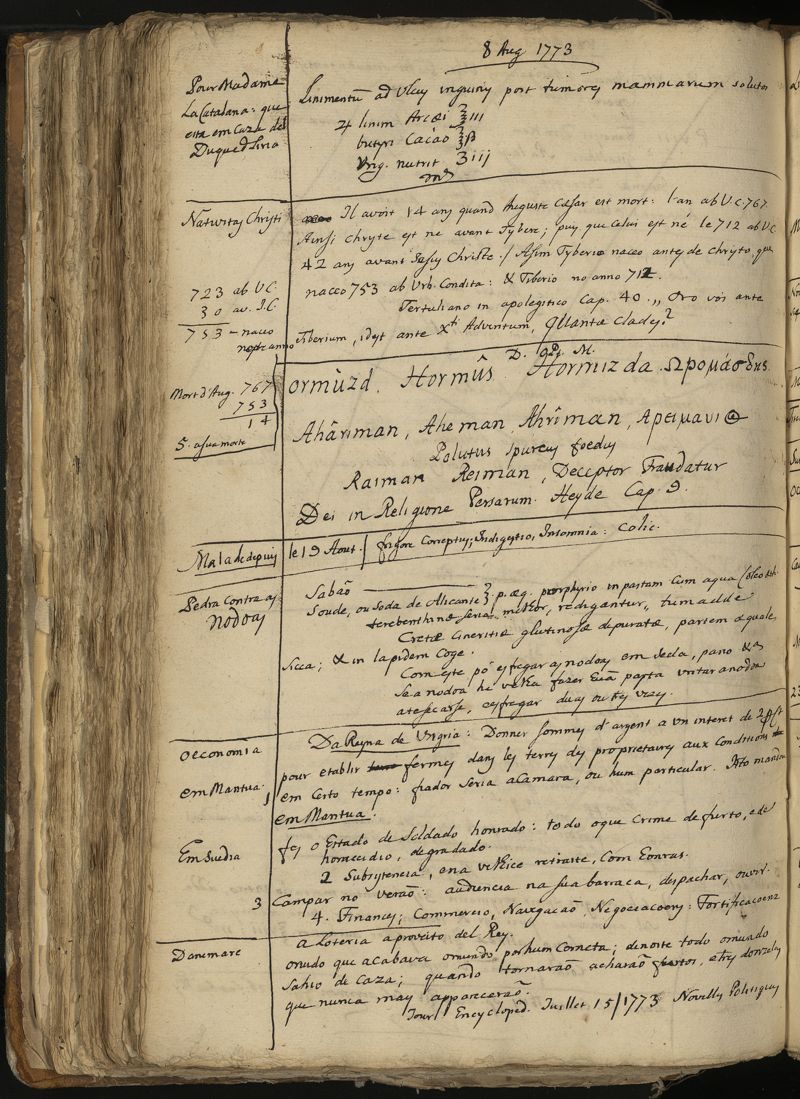 8 Aug 1773
Pour Madame
La Catalana: que
esta em Caza del
Duque d Liria
Linimentũ ad Ulcus unguinis post tumores mammarum solutos
♃ linim Arcæi ℥iii
butyri Cacáo ℥ß
Ung. nutrit ʒiij
Nativitas Christi
723 ab U.C.
30 av. J.C.
753 - naceo
Il avoit 14 ans quand Auguste Cæsar est mort: l-an ab U.C. 767.
Ainsi Chryte est ne avant Tybere; puy que celui est né le 712 ab U.C
42 ans avant Jesus Christe./ Assim Tyberio naceo antes de christo, que
naceo 753 ab Urb. Condita: & Tiberio no anno 712.
Tertuliano in apologitico Cap. 40. ,, Oro vos ante
Tiberium, idest ante Xti Adventum, Quantæ Clades?
Mort d Aug. 767
753
14
ormùzd. Hormûs Hormizda. Ωρομάσδης
Ahâriman, Aheman, Ahrîman, Αρειμανιος
Polutus spurcus foedus
Raiman Reiman, Deceptor Fraudatur
Dei in Religione Persarum. Heyde Cap. 9.
Malade depuis
le 19 Aout./ frigore Correptus, Indigestio, Insomnia: Colic.
Pedra Contra as
Nodoas
Sabaõ
Soude, ou Soda de Alicante } p. æg. porphyrio in pastam Cum aqua
redigantur,, tum adde
Cretæ Cineritiæ glutinosæ depuratæ, partem æqualẽ
Sicca; & in lapidem Coge.
Com este po esfregar as nodoas em seda, pano &a
Se a nodoa he velha fazer huã pasta untar a nodoa
ate secarse, esfregar duas ou tres vezes.
oeconomia
em Mantua.
Da Reyna de Ungria: Donner sommes d'argent a un interet de 2 p
pour etablir fermes dans les terres des proprietaires aux Conditions
em Certo tempo: fiador seria a Camara, ou hum particular. Isto mandou
em Mantua.
Em Suedia
1 fes o Estado de Soldado honrado: todo o que Crime de furto, e de
homicidio, degradado.
2 Subsistencia, e na velhice retraite, Com honras.
3 Campar no veraõ: audiencia na sua barraca, despachar, ouvir.
4. Finances; Commercio, Navegacaõ, Negociacoens: Fortificacoens
Danemarc
A Loteria a proveito del Rey.
mundo por hum Cometa; de noite todo o mundo
Sahio de Caza; quando tornaraõ acharaõ furtos, e tres donzelas
que nunca mays appareceraõ.
Jour. Encycloped. Juillet 15/1773 Novelles Politiques